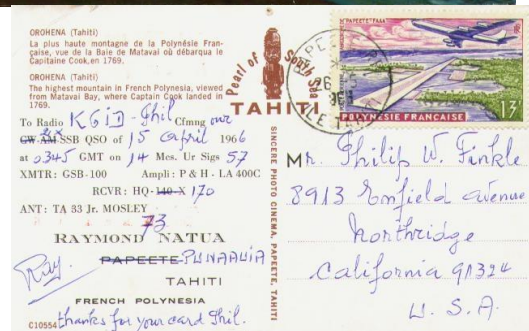 OROHENA (Tahiti)
La plus haute montagne de la Polynésie Fran-
çaise, vue de la Baie de Matavai où débarqua le
Capitaine Cook, en 1769.
OROHENA (Tahiti)
The highest mountain in French Polynesia, viewed
from Matavai Bay, where Captain Cook landed in
1769.
Pearl of South Seas
TAHITI
To Radio K6ID-Phil Cfmng our
CW-AM-SSB QSO of 15 April 1966
at 0345 GMT on 14 Mcs. Ur Sigs 57
XMTR: GSB-100 Ampli: P & H - LA 400C
RCVR: HQ-140-X 170
ANT: TA 33 Jr. MOSLEY
73
RAYMOND NATUA
Ray
PAPEETE-PUNAAUIA
TAHITI
FRENCH POLYNESIA
C10554
thanks for your card Phil.
SINCERE PHOTO CINEMA, PAPEETE, TAHITI
PAPEETE-FAAA
13F
POLYNÉSIE FRANÇAISE
Mr. Philip W. Finkle
8913 Enfield avenue
Northridge
California 91324
U.S.A.